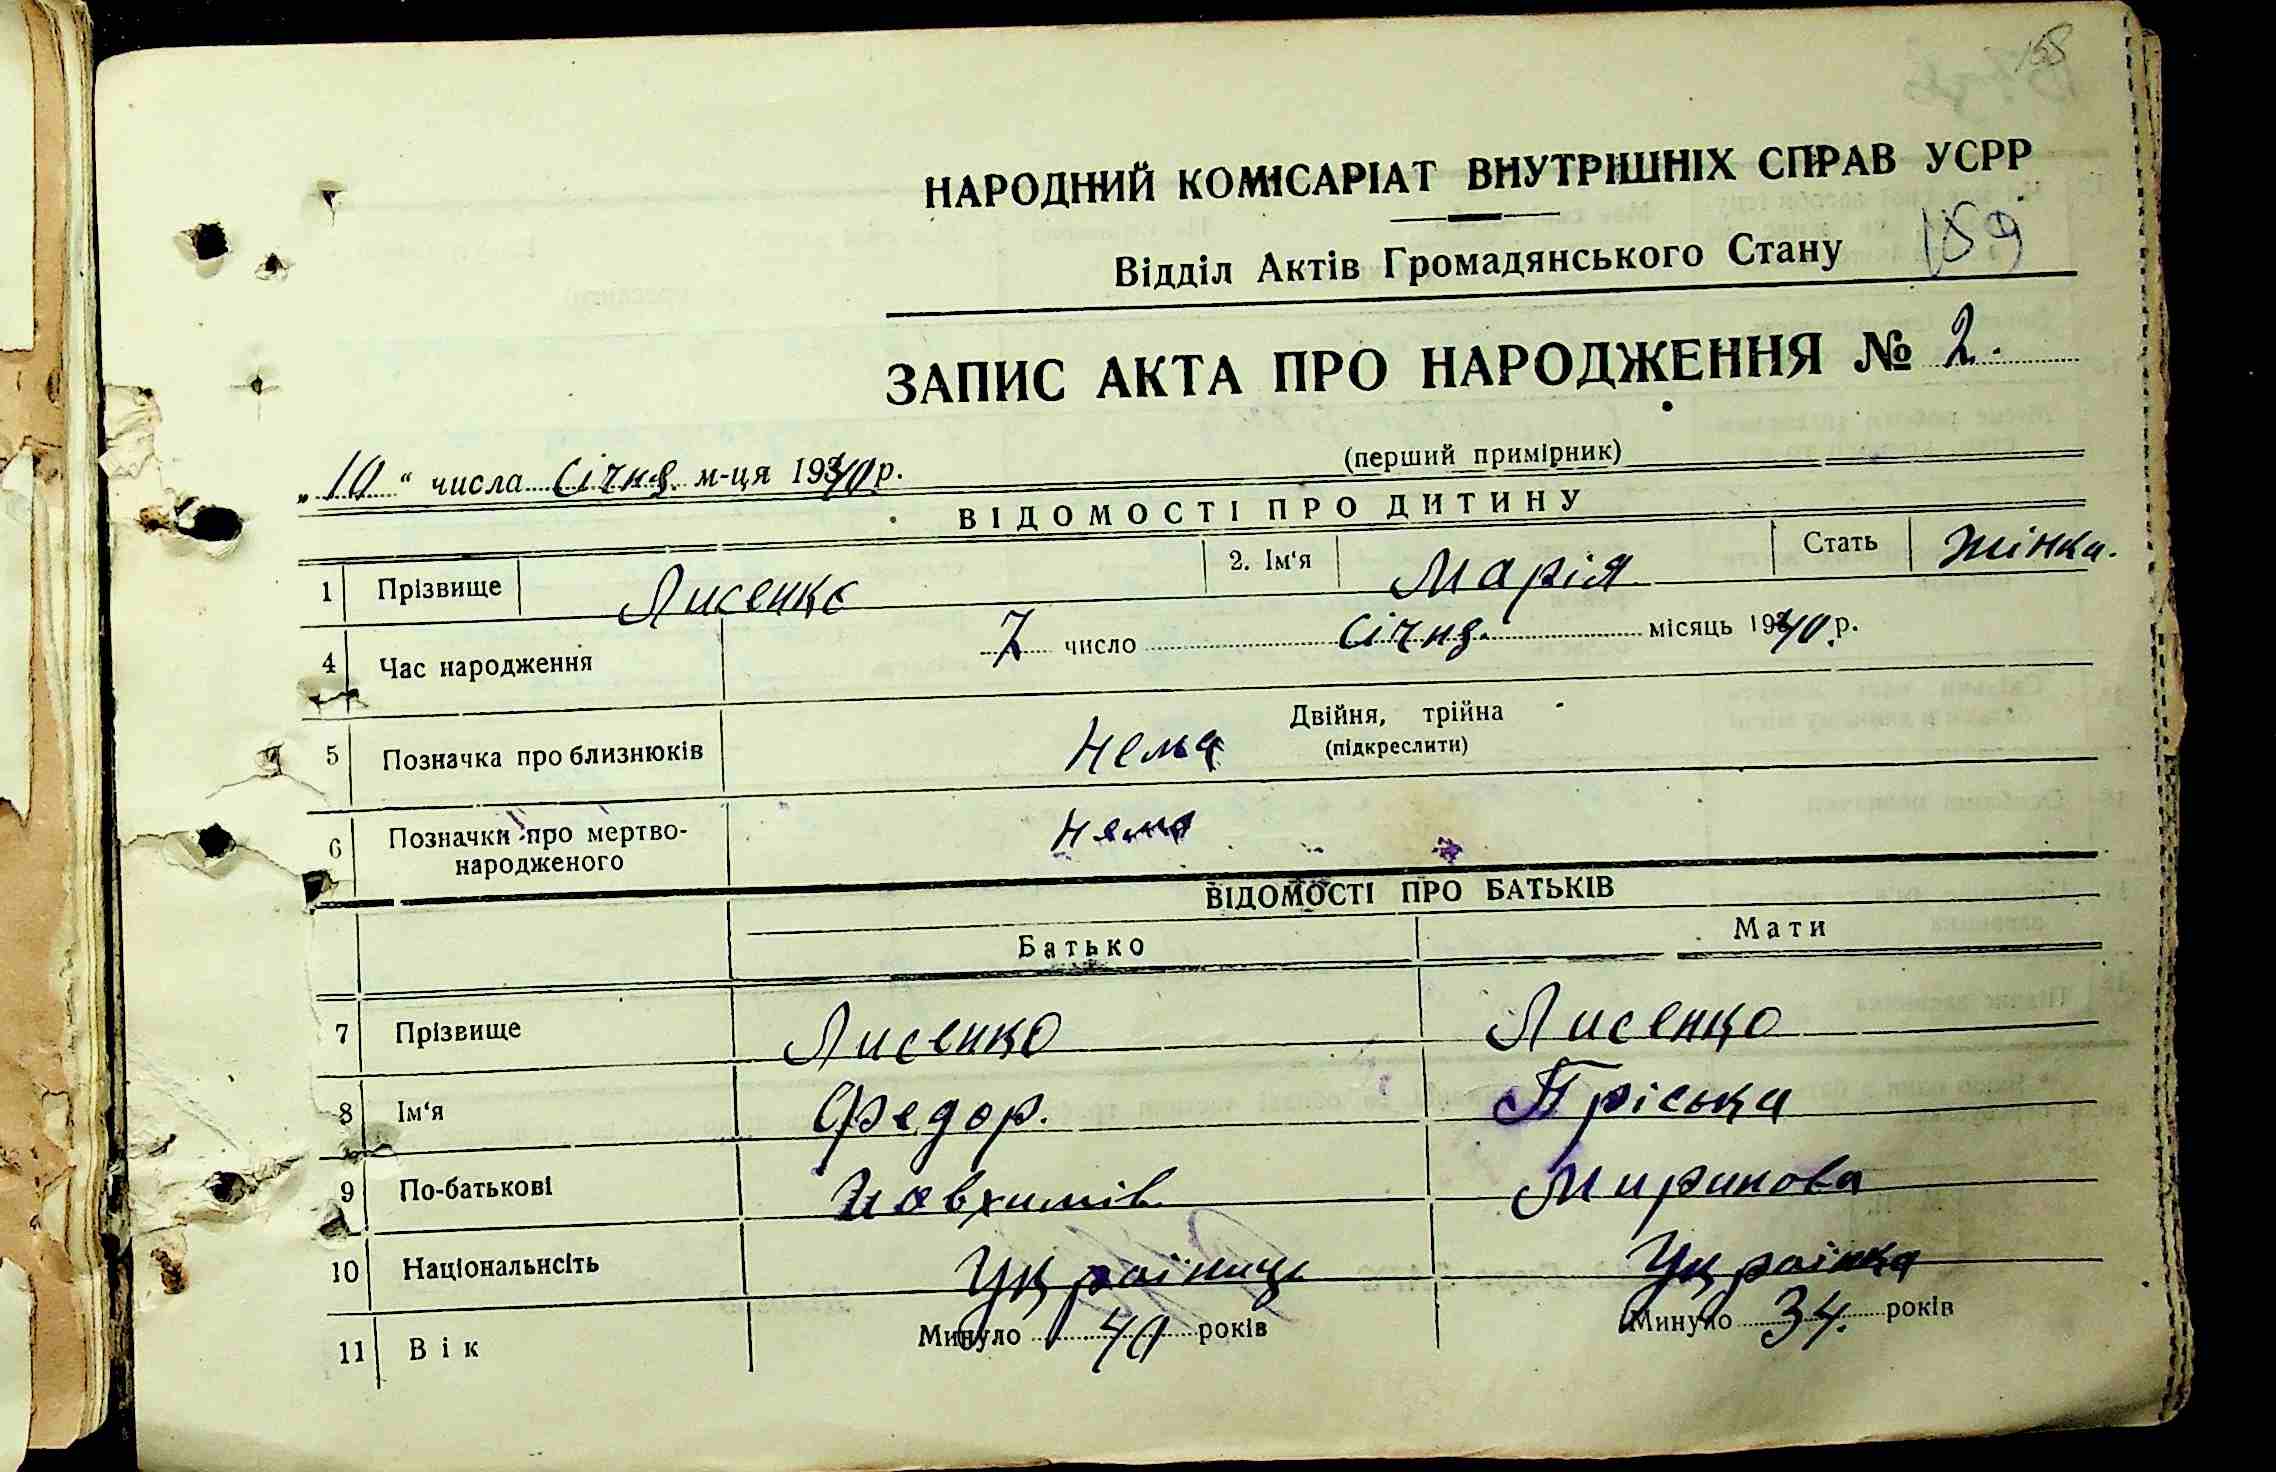 158
НАРОДНИЙ КОМІСАРІАТ ВНУТРІШНІХ СПРАВ УСРР
Відділ Актів Громадянського Стану 159
ЗАПИС АКТА ПРО НАРОДЖЕННЯ № 2.
(перший примірник)
„10“ числа Січня м-ця 1940 р.
ВІДОМОСТІ ПРО ДИТИНУ
1 Прізвище Лисенко 2. Ім‘я Марія Стать жінка.
4 Час народження 7 число Січня місяць 1940 р.
5 Позначка про близнюків нема Двійня, трійна
(підкреслити)
6 Позначки про мертво-
народженого нема
ВІДОМОСТІ ПРО БАТЬКІВ
Батько Мати
7 Прізвище Лисенко Лисенко
8 Ім‘я Федор. Пріська
9 По-батькові Иовхимів Миринова
10 Національнсіть Українець Українка
11 Вік Минуло 40 років Минуло 34. років